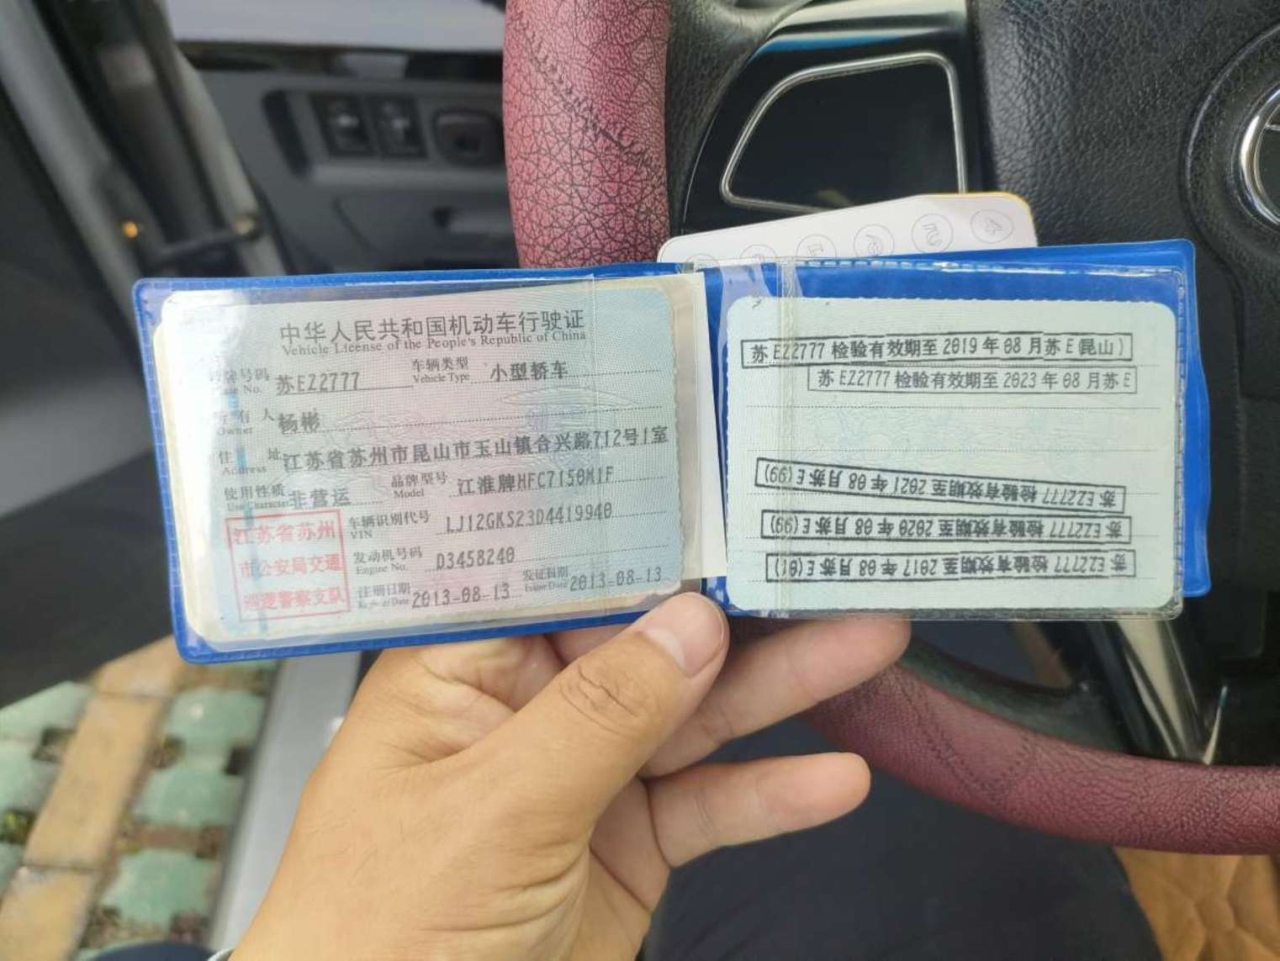 中华人民共和国机动车行驶证
Vehicle License of the People's Republic of China
号牌号码 苏EZ2777 车辆类型 小型轿车
Plate No. Vehicle Type
所有人 杨彬
Owner
住址 江苏省苏州市昆山市玉山镇合兴路712号1室
Address
使用性质 非营运 品牌型号 江淮牌HFC7150M1F
Use Character Model
江苏省苏州
市公安局交通
巡逻警察支队
车辆识别代号 LJ12GKS23D4419940
VIN
发动机号码 D3458240
Engine No.
注册日期 2013-08-13 发证日期 2013-08-13
Register Date Issue Date
苏EZ2777 检验有效期至 2019年08月苏E(昆山)
苏EZ2777 检验有效期至 2023年08月苏E
苏EZ2777 检验有效期至 2021年08月苏E(99)
苏EZ2777 检验有效期至 2020年08月苏E(99)
苏EZ2777 检验有效期至 2017年08月苏E(01)